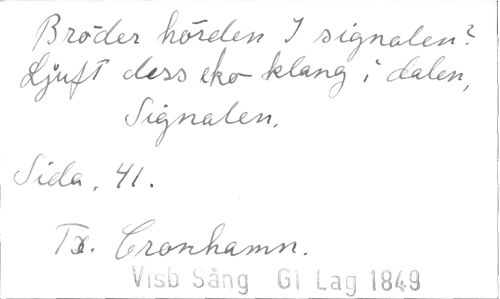 Bröder hörden I signalen?
Ljuft dess eko klang i dalen,
Signalen.
Sida. 41.
Tx. Cronhamn.
Visb Sång Gl Lag 1849